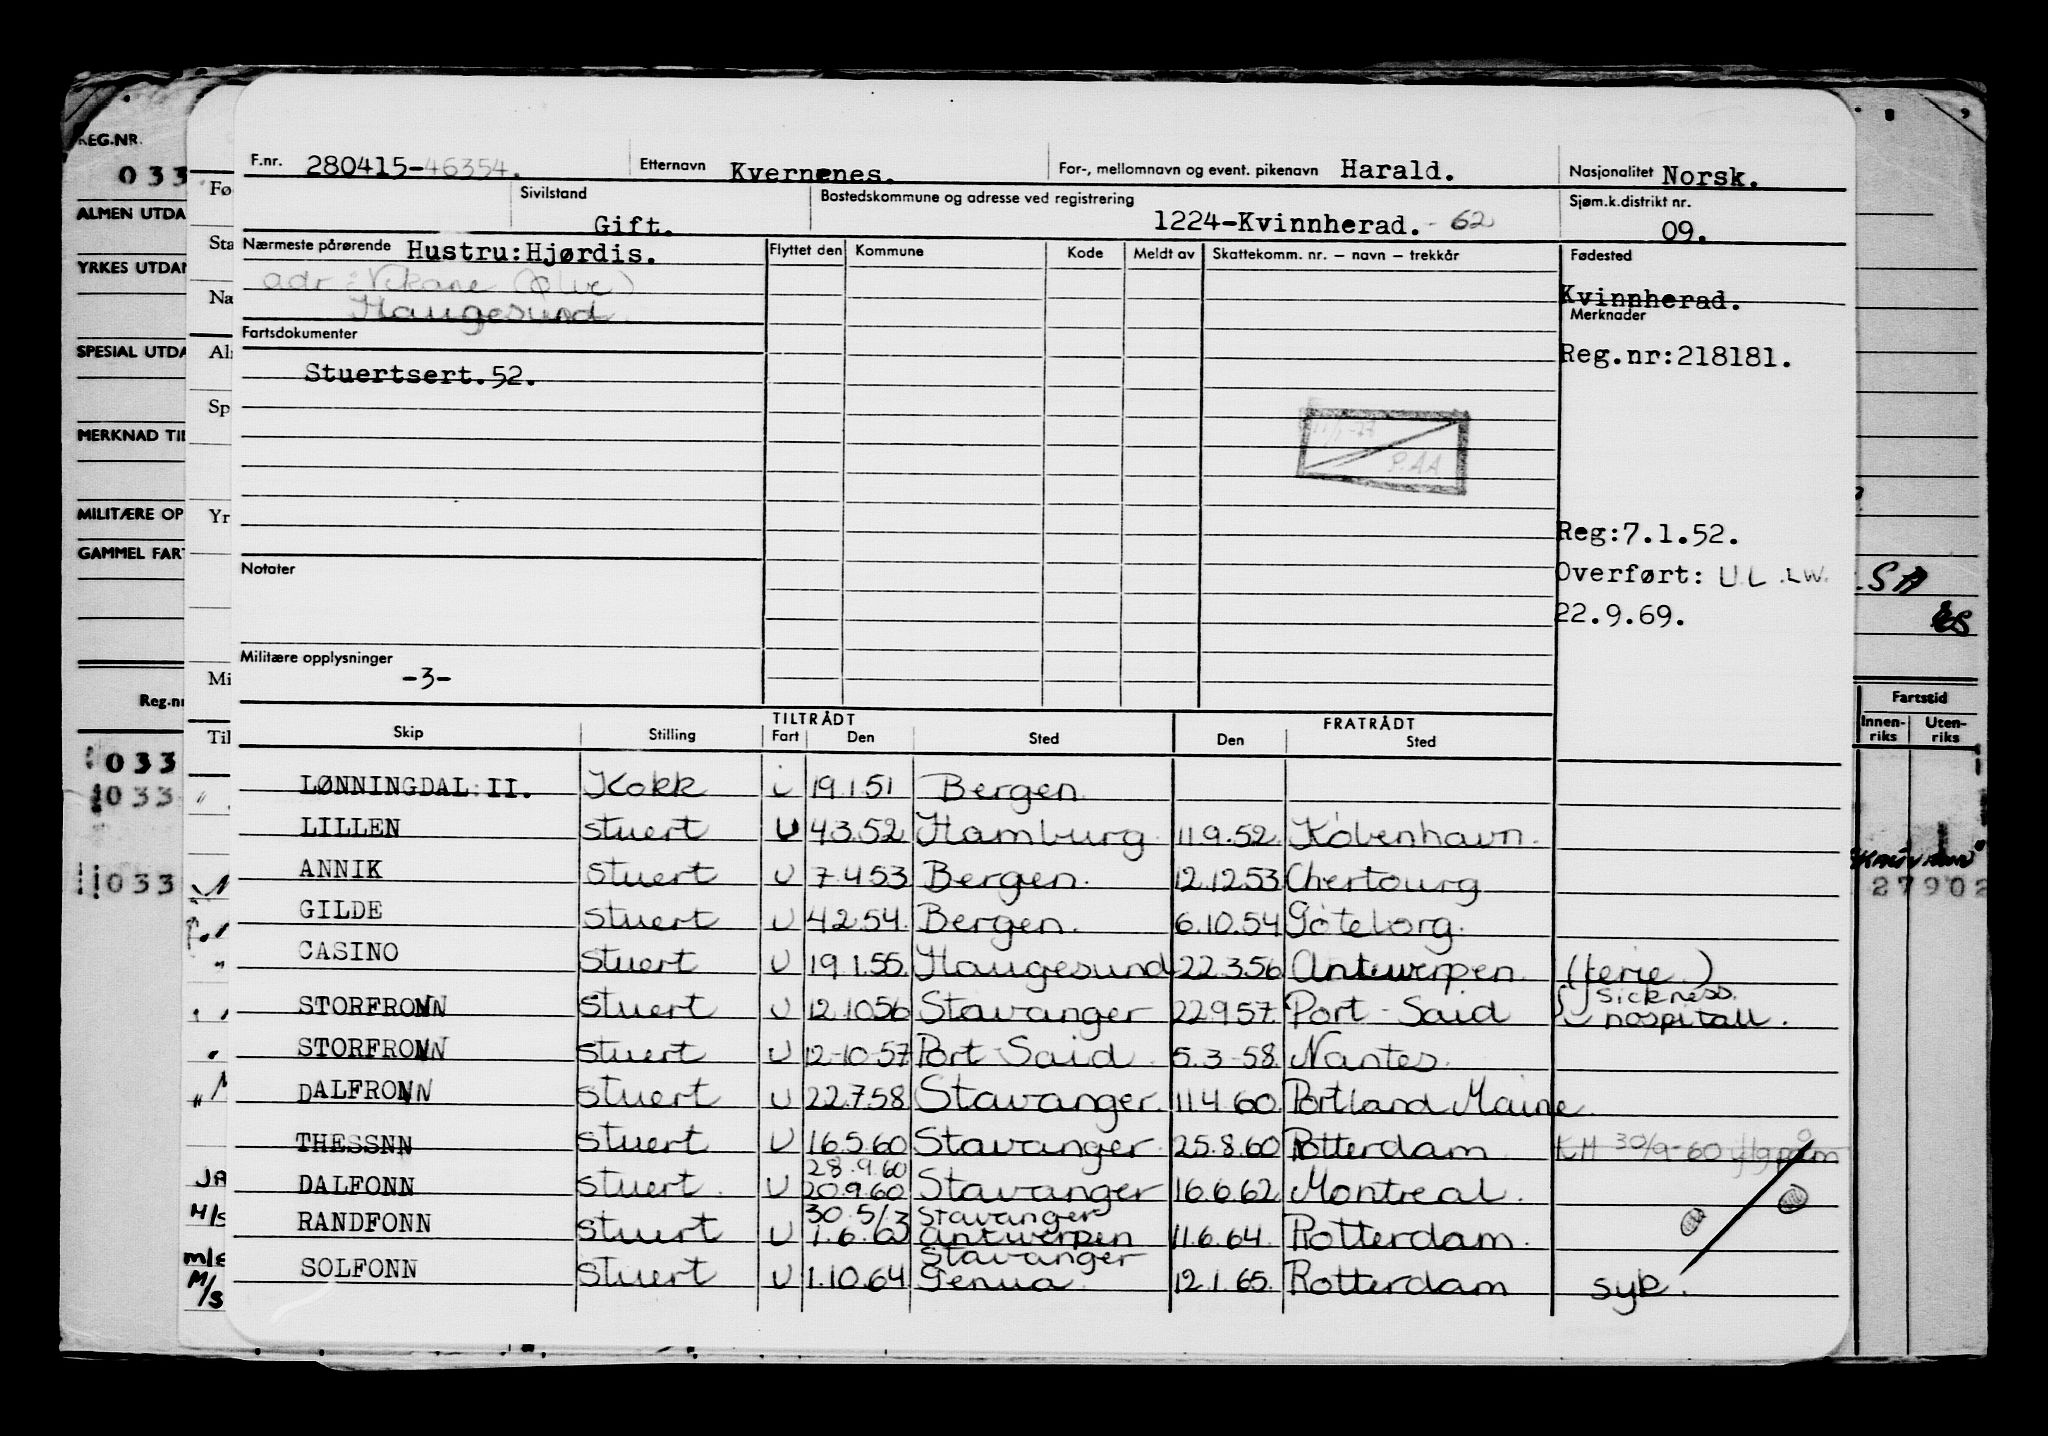 REG.NR.
033
ALMEN UTDA
YRKES UTDAN
SPESIAL UTDA
MERKNAD TIL
MILITÆRE OP
GAMMEL FART
Reg.nr
033
033
033
Fø
Sta
Na
Aln
Sp
Yr
Mi
Til
F.nr. 280415-46354. Etternavn Kvernenes. For-, mellomnavn og event. pikenavn Harald. Nasjonalitet Norsk.
Sivilstand Gift. Bostedskommune og adresse ved registrering 1224-Kvinnherad. - 62 Sjøm.k.distrikt nr. 09.
Nærmeste pårørende Hustru:Hjørdis. Flyttet den Kommune Kode Meldt av Skattekomm. nr. – navn – trekkår Fødested
adr: Vikane (Ølve)
Haugesund
Kvinnherad.
Merknader
Fartsdokumenter
Reg.nr:218181.
Stuertsert.52.
P.AA
Reg:7.1.52.
Overført: U.L. LW.
22.9.69.
Notater
Militære opplysninger
-3-
TILTRÅDT FRATRÅDT
Skip Stilling Fart Den Sted Den Sted
LØNNINGDAL II. Kokk i 19.1.51 Bergen
LILLEN stuert U 4.3.52 Hamburg 11.9.52 København.
ANNIK stuert U 7.4.53 Bergen. 12.12.53 Chertourg
GILDE stuert U 4.2.54. Bergen. 6.10.54 Göteborg.
CASINO stuert U 19.1.55. Haugesund 22.3.56 Antwerpen (ferie)
STORFRONN stuert U 12.10.56 Stavanger 22.9.57. Port-Said sickness hospitall.
STORFRONN stuert U 12-10-57 Port-Said. 5.3-58. Nantes.
DALFRONN stuert U 22.7.58 Stavanger. 11.4.60 Portland Maine.
THESSNN stuert U 16.5.60 Stavanger. 25.8.60 Rotterdam KH 30/9-60
28.9.60
DALFONN stuert. U 20.9.60 Stavanger 16.6.62 Montreal.
30.5/3 Stavanger
RANDFONN stuert U 1.6.63 Antwerpen 11.6.64. Rotterdam.
Stavanger
SOLFONN stuert U 1.10.64 Genua. 12.1.65. Rotterdam syk.
Fartstid
Innen-riks Uten-riks
27902
JA
M/S
M/S